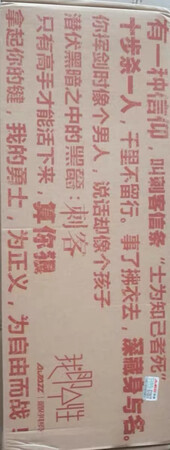 有一种信仰，叫刺客信条 “士为知己者死”
十步杀一人，千里不留行。事了拂衣去，深藏身与名。
你浑剑时像个男人，说话却像个孩子
潜伏黑暗之中的黑：刺客
只有高手才能活下来，算你狠
拿起你的键，我的勇士，为正义，为自由而战！
我即个性
AJAZZ